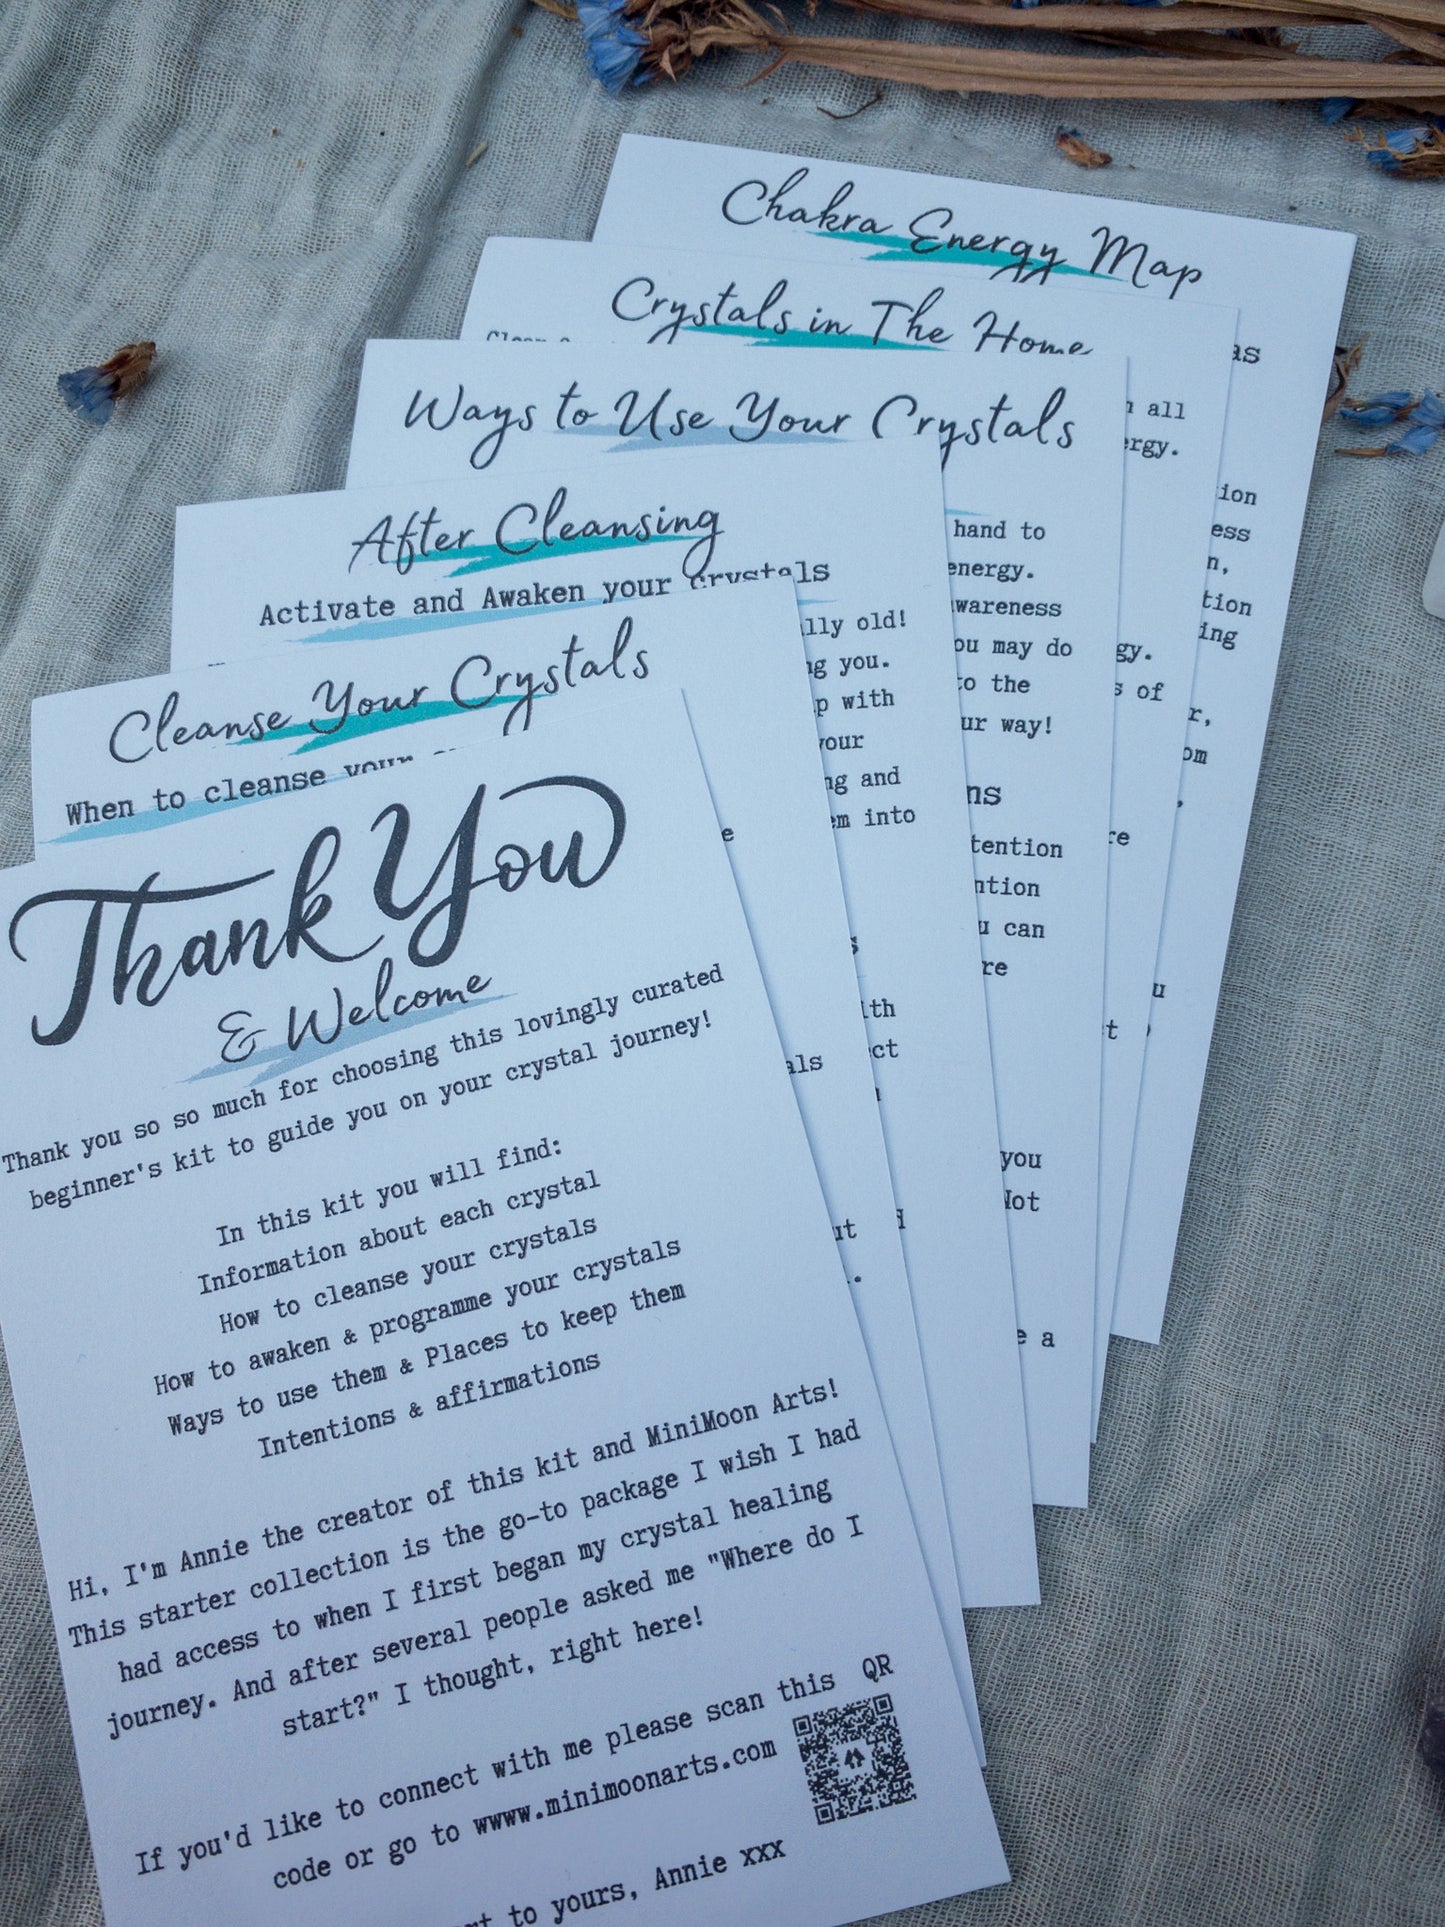 Chakra Energy Map
as
ion
ess
n,
tion
ing
r,
om
Crystals in The Home
all
rgy.
gy.
s of
re
u
t
Ways to Use Your Crystals
hand to
energy.
wareness
ou may do
to the
ur way!
ns
tention
ntion
u can
re
you
Not
e a
After Cleansing
Activate and Awaken your crystals
lly old!
ng you.
p with
your
ng and
em into
s
ith
ect
Cleanse Your Crystals
When to cleanse your
e
als
ut
Thank You
& Welcome
Thank you so so much for choosing this lovingly curated
beginner's kit to guide you on your crystal journey!
In this kit you will find:
Information about each crystal
How to cleanse your crystals
How to awaken & programme your crystals
Ways to use them & Places to keep them
Intentions & affirmations
Hi, I'm Annie the creator of this kit and MiniMoon Arts!
This starter collection is the go-to package I wish I had
had access to when I first began my crystal healing
journey. And after several people asked me "Where do I
start?" I thought, right here!
If you'd like to connect with me please scan this QR
code or go to www.minimoonarts.com
to yours, Annie xxx